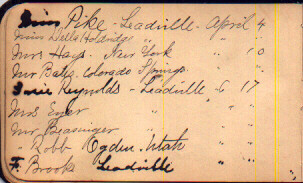 Miss Pike - Leadville - April 4
Miss Della Holdridge " "
Mrs Hays - New York " 10
Mr Bates, Colorado Springs "
Reynolds - Leadville - 6 17
Mrs " "
Mr " "
" Robb Ogden - Utah "
F. Brooks Leadville "